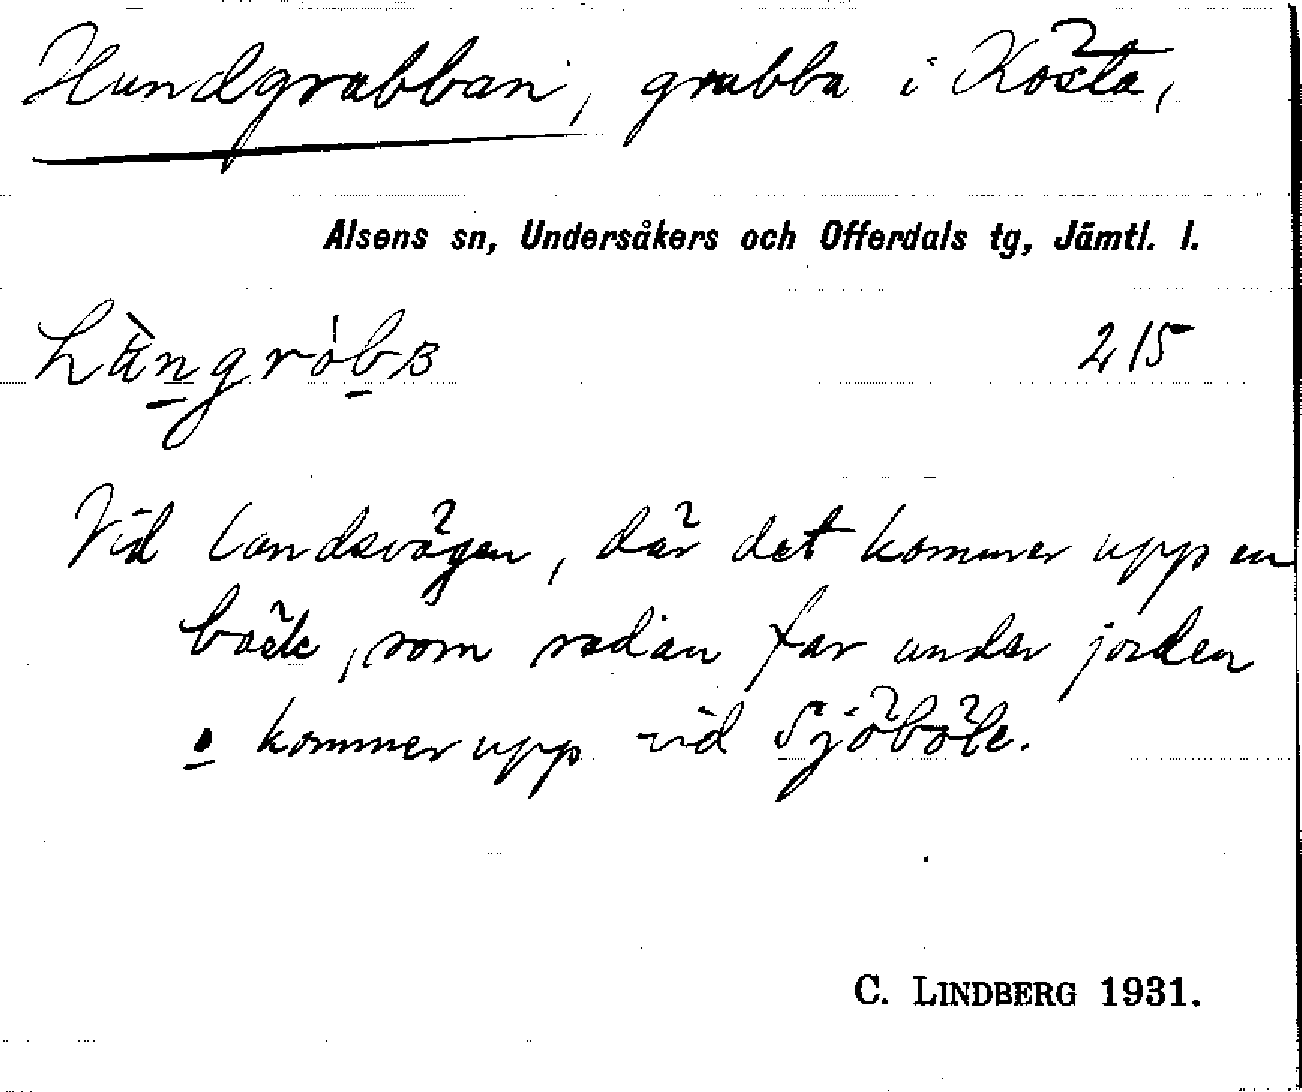 Hundgrabban, grubba i Kösta,
Alsens sn, Undersåkers och Offerdals tg, Jämtl. l.
215
Vid landsvägen, där det kommer upp en
bäck, som sedan far under jorden
o kommer upp vid Sjöböle.
C. LINDBERG 1931.